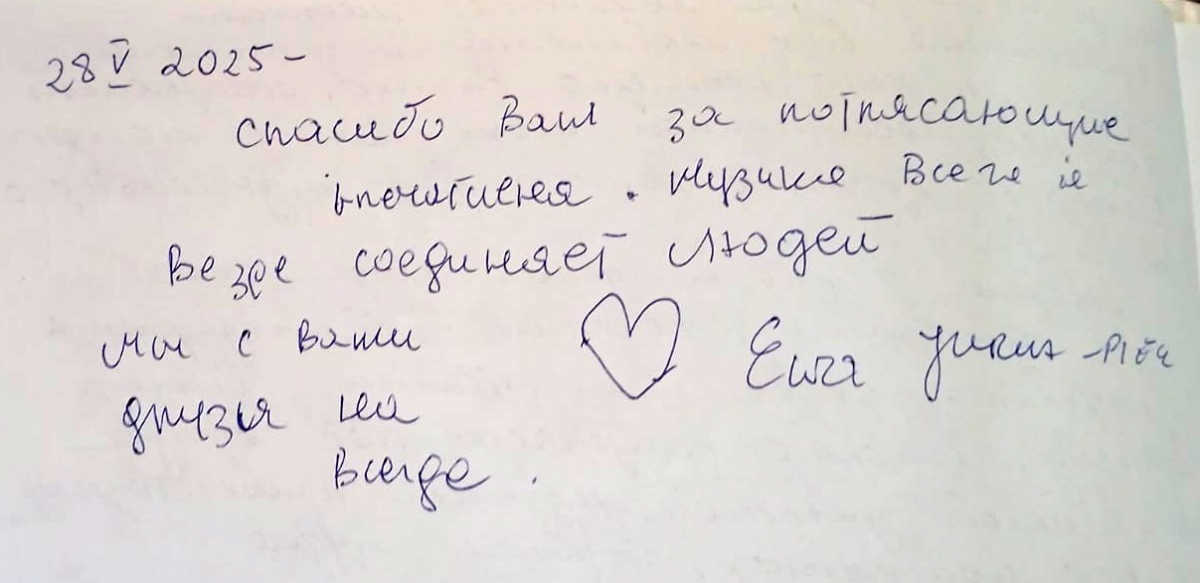 28 V 2025 –
спасибо Вам за потрясающие
впечатленя. Музыка Всегя и
Везде соединяет людей
мы с вами
друзья на
всегде.
Ewa